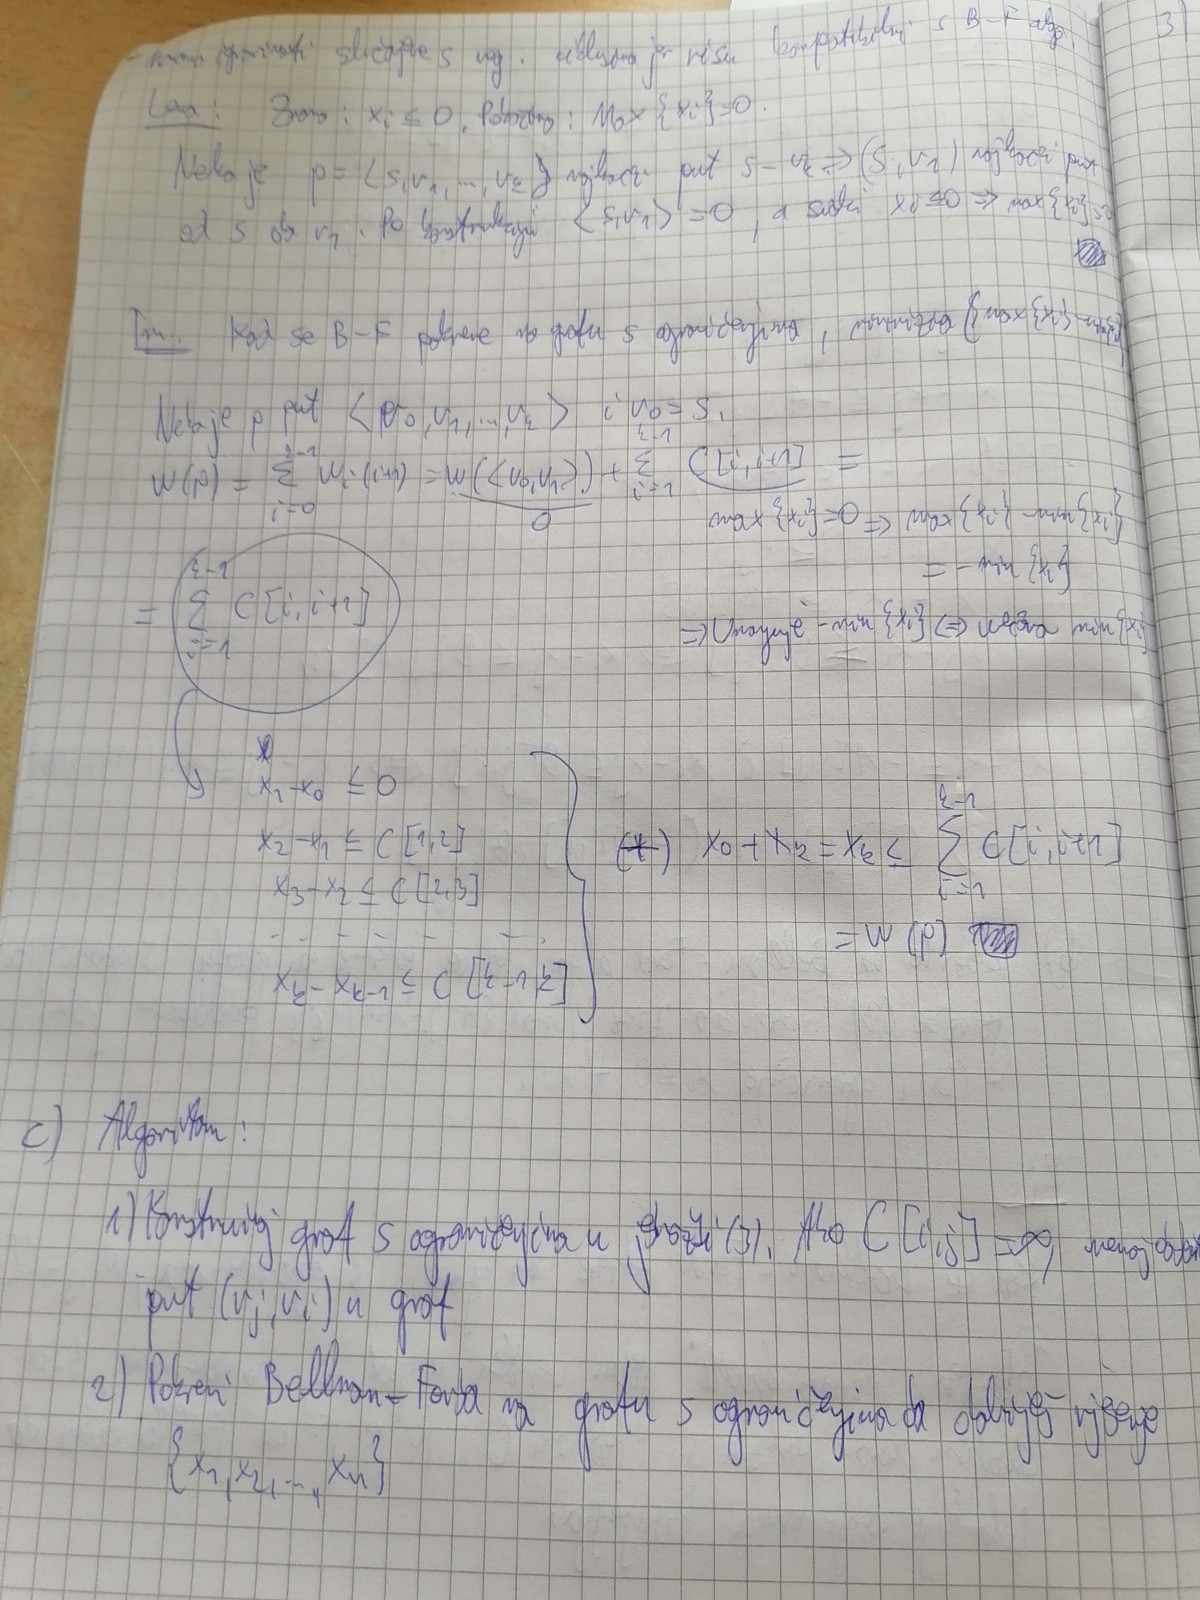 3)
slučajeve s neg. ciklusima jer nisu kompatibilni s B-F alg.
Lema: Znamo: xi ≤ 0. Pokažimo: Max {xi}=0.
Neka je p = <s,v1,...,vk> najkraći put s - vk => (s,v1) najkraći put
od s do v1. Po konstrukciji <s,v1> = 0, a svaki xi ≤ 0 => max{xi}=0
Tm. Kad se B-F pokrene na grafu s ograničenjima, minimizira (max{xi}-min{xi})
Neka je p put <v0,v1,...,vk> i v0=s.
w(p) = Σ_{i=0}^{k-1} w_i(i+1) = w(<v0,v1>) + Σ_{i=1}^{k-1} C[i,i+1] =
0
max{xi}=0 => max{xi}-min{xi}
= -min{xi}
= Σ_{i=1}^{k-1} C[i,i+1]
=> Umanjuje -min{xi} <=> uveća min{xi}
x1-x0 ≤ 0
x2-x1 ≤ C[1,2]
x3-x2 ≤ C[2,3]
- - - - - -
xk-xk-1 ≤ C[k-1,k]
(*) x0+xk=xk ≤ Σ_{i=1}^{k-1} C[i,i+1]
= w(p)
c) Algoritam:
1) Konstruiraj graf s ograničenjima u Ako C[i,j]=∞,
put (vj,vi) u graf
2) Pokreni Bellman-Forda na grafu s ograničenjima da dobiješ rješenje
{x1,x2,...,xn}